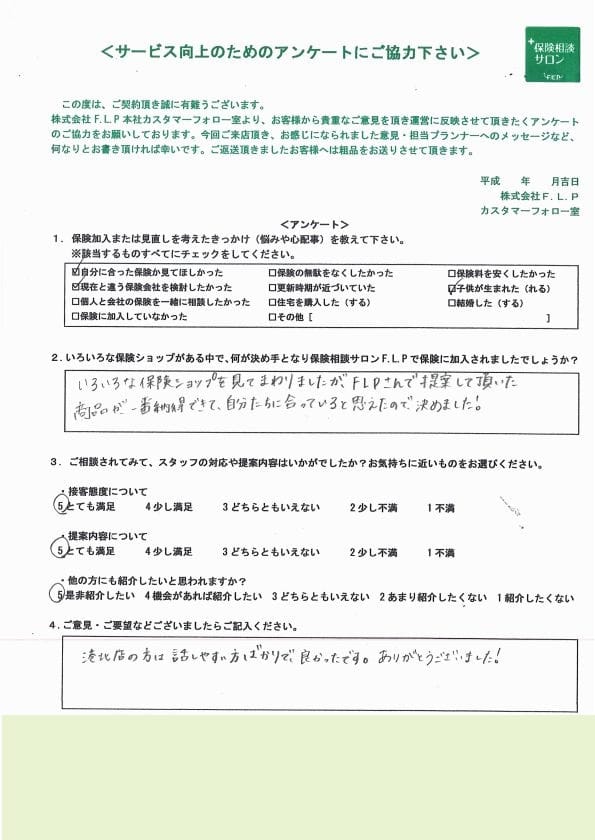 ＜サービス向上のためのアンケートにご協力下さい＞
保険相談
サロン
F.L.P
この度は、ご契約頂き誠に有難うございます。
株式会社F.L.P本社カスタマーフォロー室より、お客様から貴重なご意見を頂き運営に反映させて頂きたくアンケート
のご協力をお願いしております。今回ご来店頂き、お感じになられました意見・担当プランナーへのメッセージなど、
何なりとお書き頂ければ幸いです。ご返送頂きましたお客様へは粗品をお送りさせて頂きます。
平成　　年　　月吉日
株式会社F.L.P
カスタマーフォロー室
＜アンケート＞
1．保険加入または見直しを考えたきっかけ（悩みや心配事）を教えて下さい。
※該当するものすべてにチェックをしてください。
☑自分に合った保険か見てほしかった　□保険の無駄をなくしたかった　□保険料を安くしたかった
☑現在と違う保険会社を検討したかった　□更新時期が近づいていた　☑子供が生まれた（れる）
□個人と会社の保険を一緒に相談したかった　□住宅を購入した（する）　□結婚した（する）
□保険に加入していなかった　□その他［　　　　］
2．いろいろな保険ショップがある中で、何が決め手となり保険相談サロンF.L.Pで保険に加入されましたでしょうか？
いろいろな保険ショップを見てまわりましたが、FLPさんで提案して頂いた
商品が一番納得できて、自分たちに合っていると思えたので決めました！
3．ご相談されてみて、スタッフの対応や提案内容はいかがでしたか？お気持ちに近いものをお選びください。
・接客態度について
5とても満足　4少し満足　3どちらともいえない　2少し不満　1不満
・提案内容について
5とても満足　4少し満足　3どちらともいえない　2少し不満　1不満
・他の方にも紹介したいと思われますか？
5是非紹介したい　4機会があれば紹介したい　3どちらともいえない　2あまり紹介したくない　1紹介したくない
4．ご意見・ご要望などございましたらご記入ください。
港北店の方は話しやすい方ばかりで、良かったです。ありがとうございました！